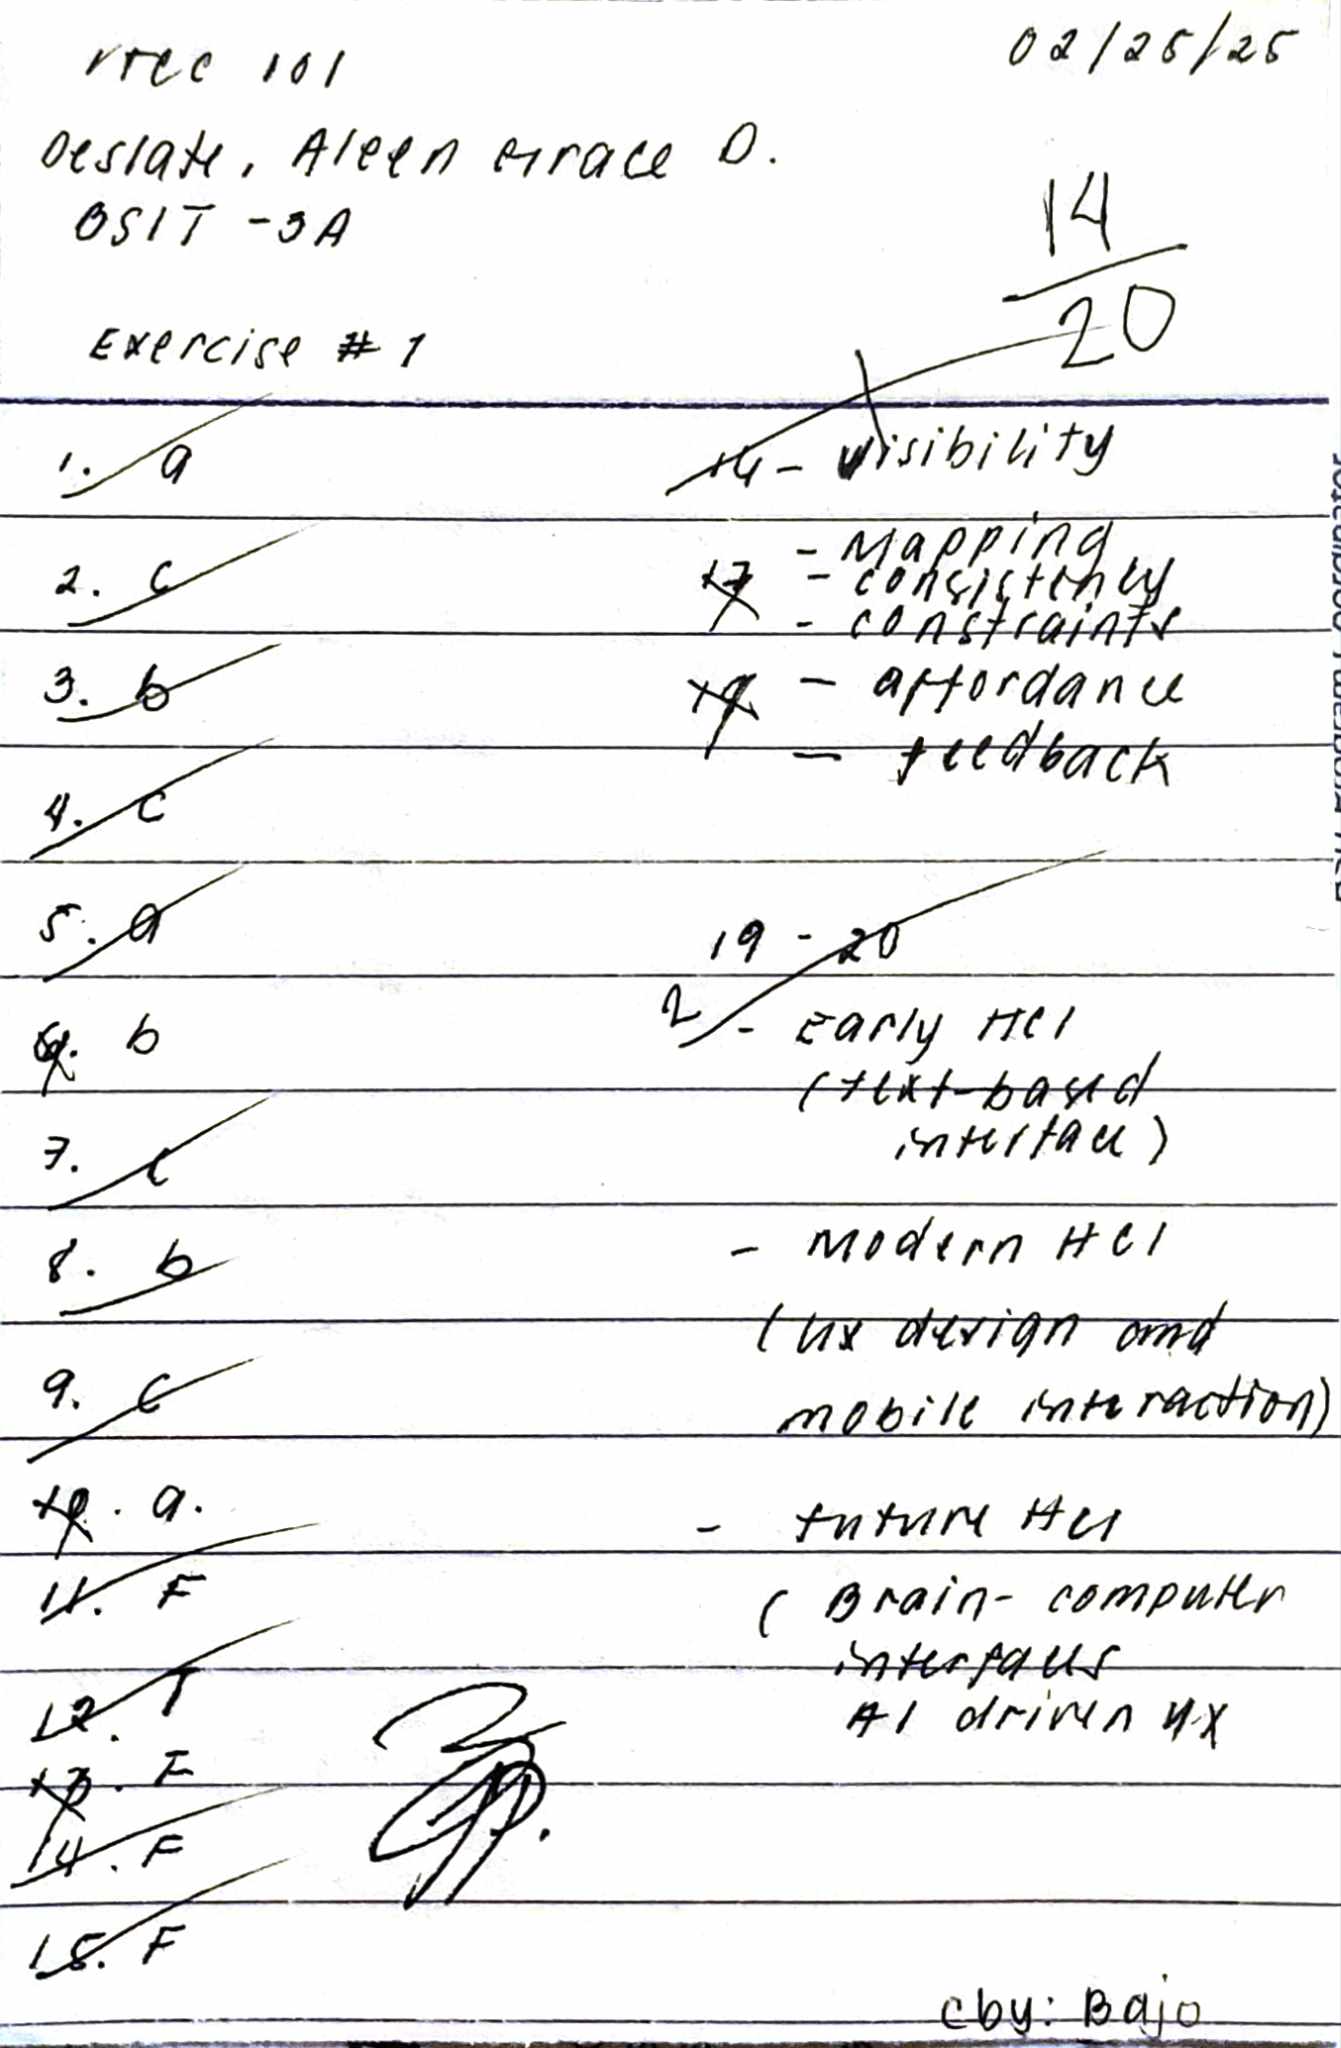 02/25/25
ITEC 101
Deslate, Aleen Grace D.
BSIT - 3A
14
20
Exercise # 1
1. a
2. c
3. b
4. c
5. a
6. b
7. c
8. b
9. c
10. a.
11. F
12. T
13. F
14. F
15. F
16 - Visibility
- Mapping
17 - consistency
- constraints
18 - affordance
- feedback
19 - 20
2
- Early HCI
(text-based
interface)
- Modern HCI
(UX design and
mobile interaction)
- future HCI
(Brain-computer
interfaces
AI driven UX
cby: Bajo